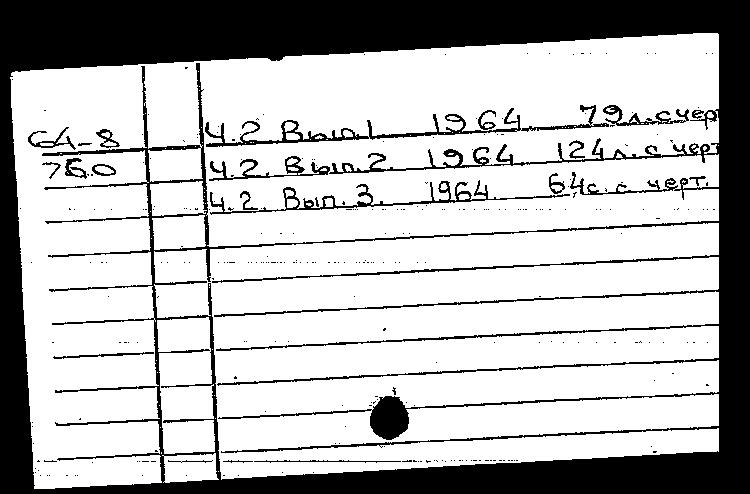 64-8 Ч.2 Вып.1 1964 79л.с черт
760 Ч.2. Вып.2. 1964. 124л. с черт
Ч.2. Вып. 3. 1964 64с. с черт.